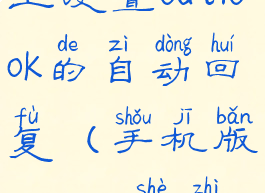 de zì dòng huí
ok的自动回
fù shǒu jī bǎn
复(手机版
shè zhì